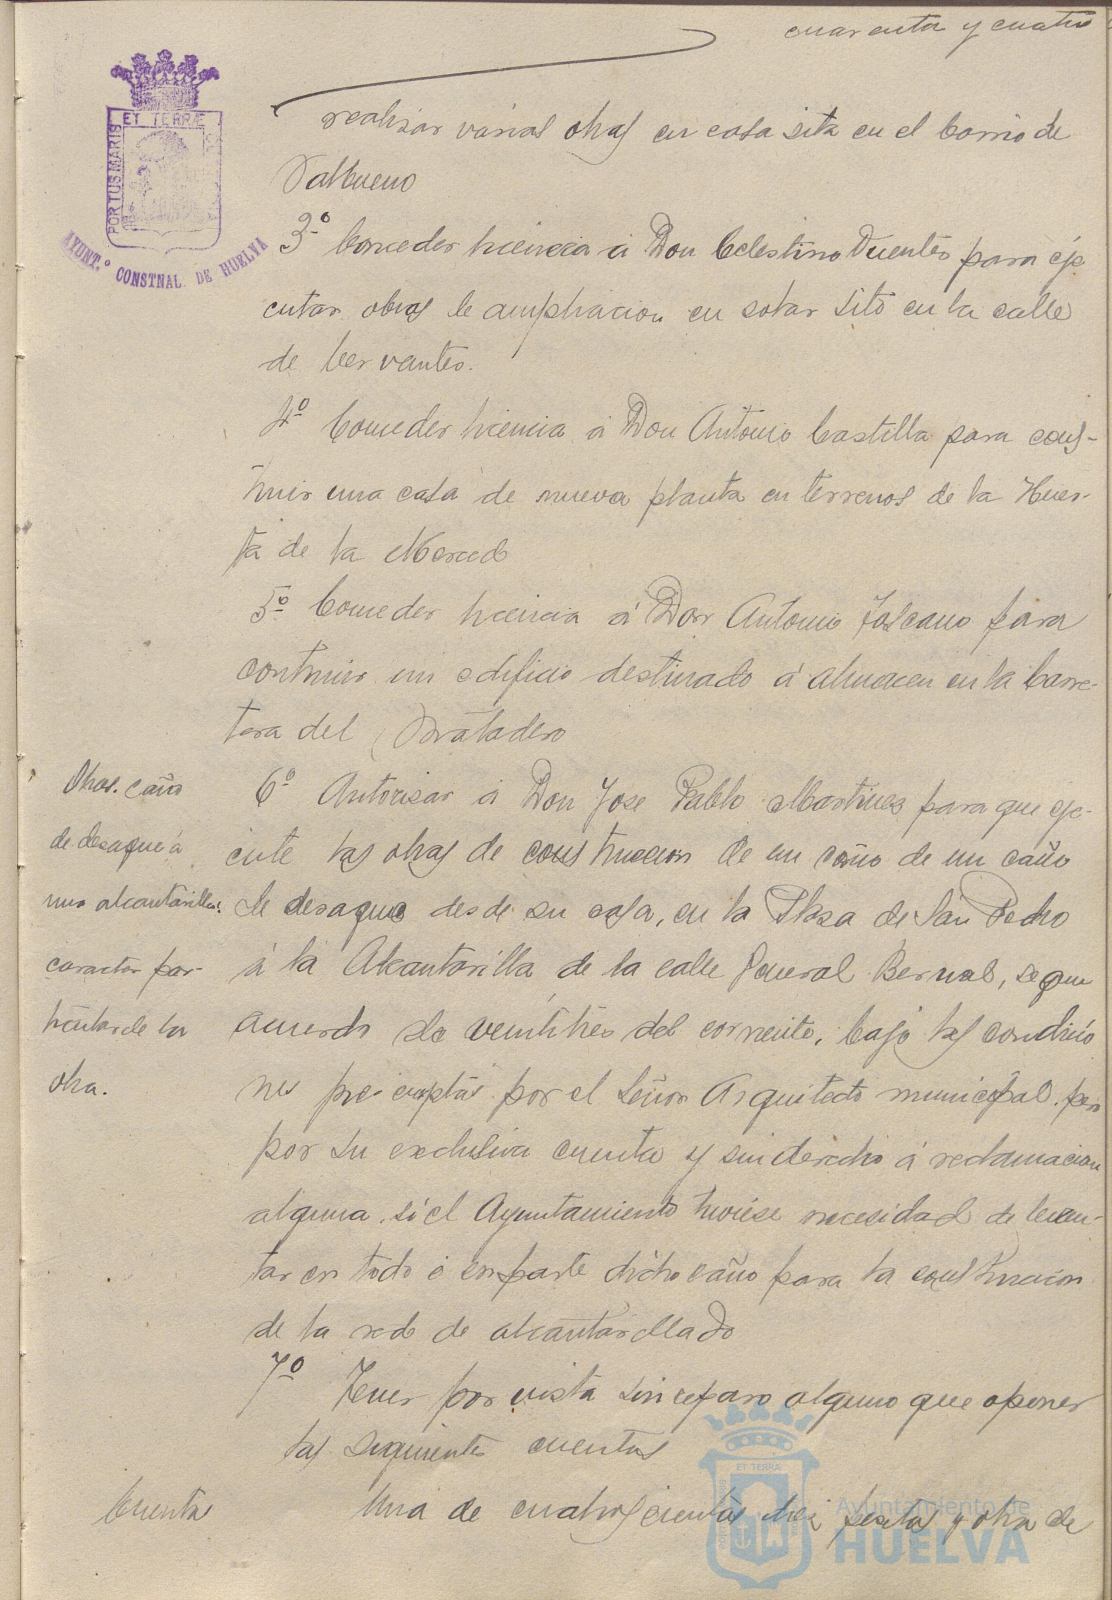 cuarenta y cuatro
ET TERRÆ
PORTUS MARIS
AYUNT.º CONSTNAL. DE HUELVA
realisar varias obras en casa sita en el barrio de
Valbueno
3º Conceder licencia á Don Celestino Fuentes para eje
cutar obras de ampliacion en solar sito en la calle
de Cervantes.
4º Conceder licencia á Don Antonio Castilla para cons-
truir una casa de nueva planta en terrenos de la Huer-
ta de la Merced
5º Conceder licencia á Don Antonio Toscano para
contruir un edificio destinado á almacen en la Carre-
tera del Matadero
Obras. caño
de desague á
una alcantarilla:
caracter par-
ticular de la
obra.
6º Autorisar á Don Jose Pablo Martinez para que eje-
cute las obras de construccion de un caño de un caño
de desague desde su casa, en la Plasa de San Pedro
á la Alcantarilla de la calle General Bernal, segun
acuerdo de veintitres del corriente, bajo las condicio
nes preceptas por el Señor Arquitecto municipal. pero
por su exclusiva cuenta y sin derecho á reclamacion
alguna si el Ayuntamiento tuviese necesidad de levan-
tar en todo ó en parte dicho caño para la construccion
de la red de alcantarillado
7º Tener por vista sin reparo alguno que oponer
las siguientes cuentas
Cuenta
Una de cuatrocientas tres pesetas y otra de
ET TERRA
Ayuntamiento de
HUELVA